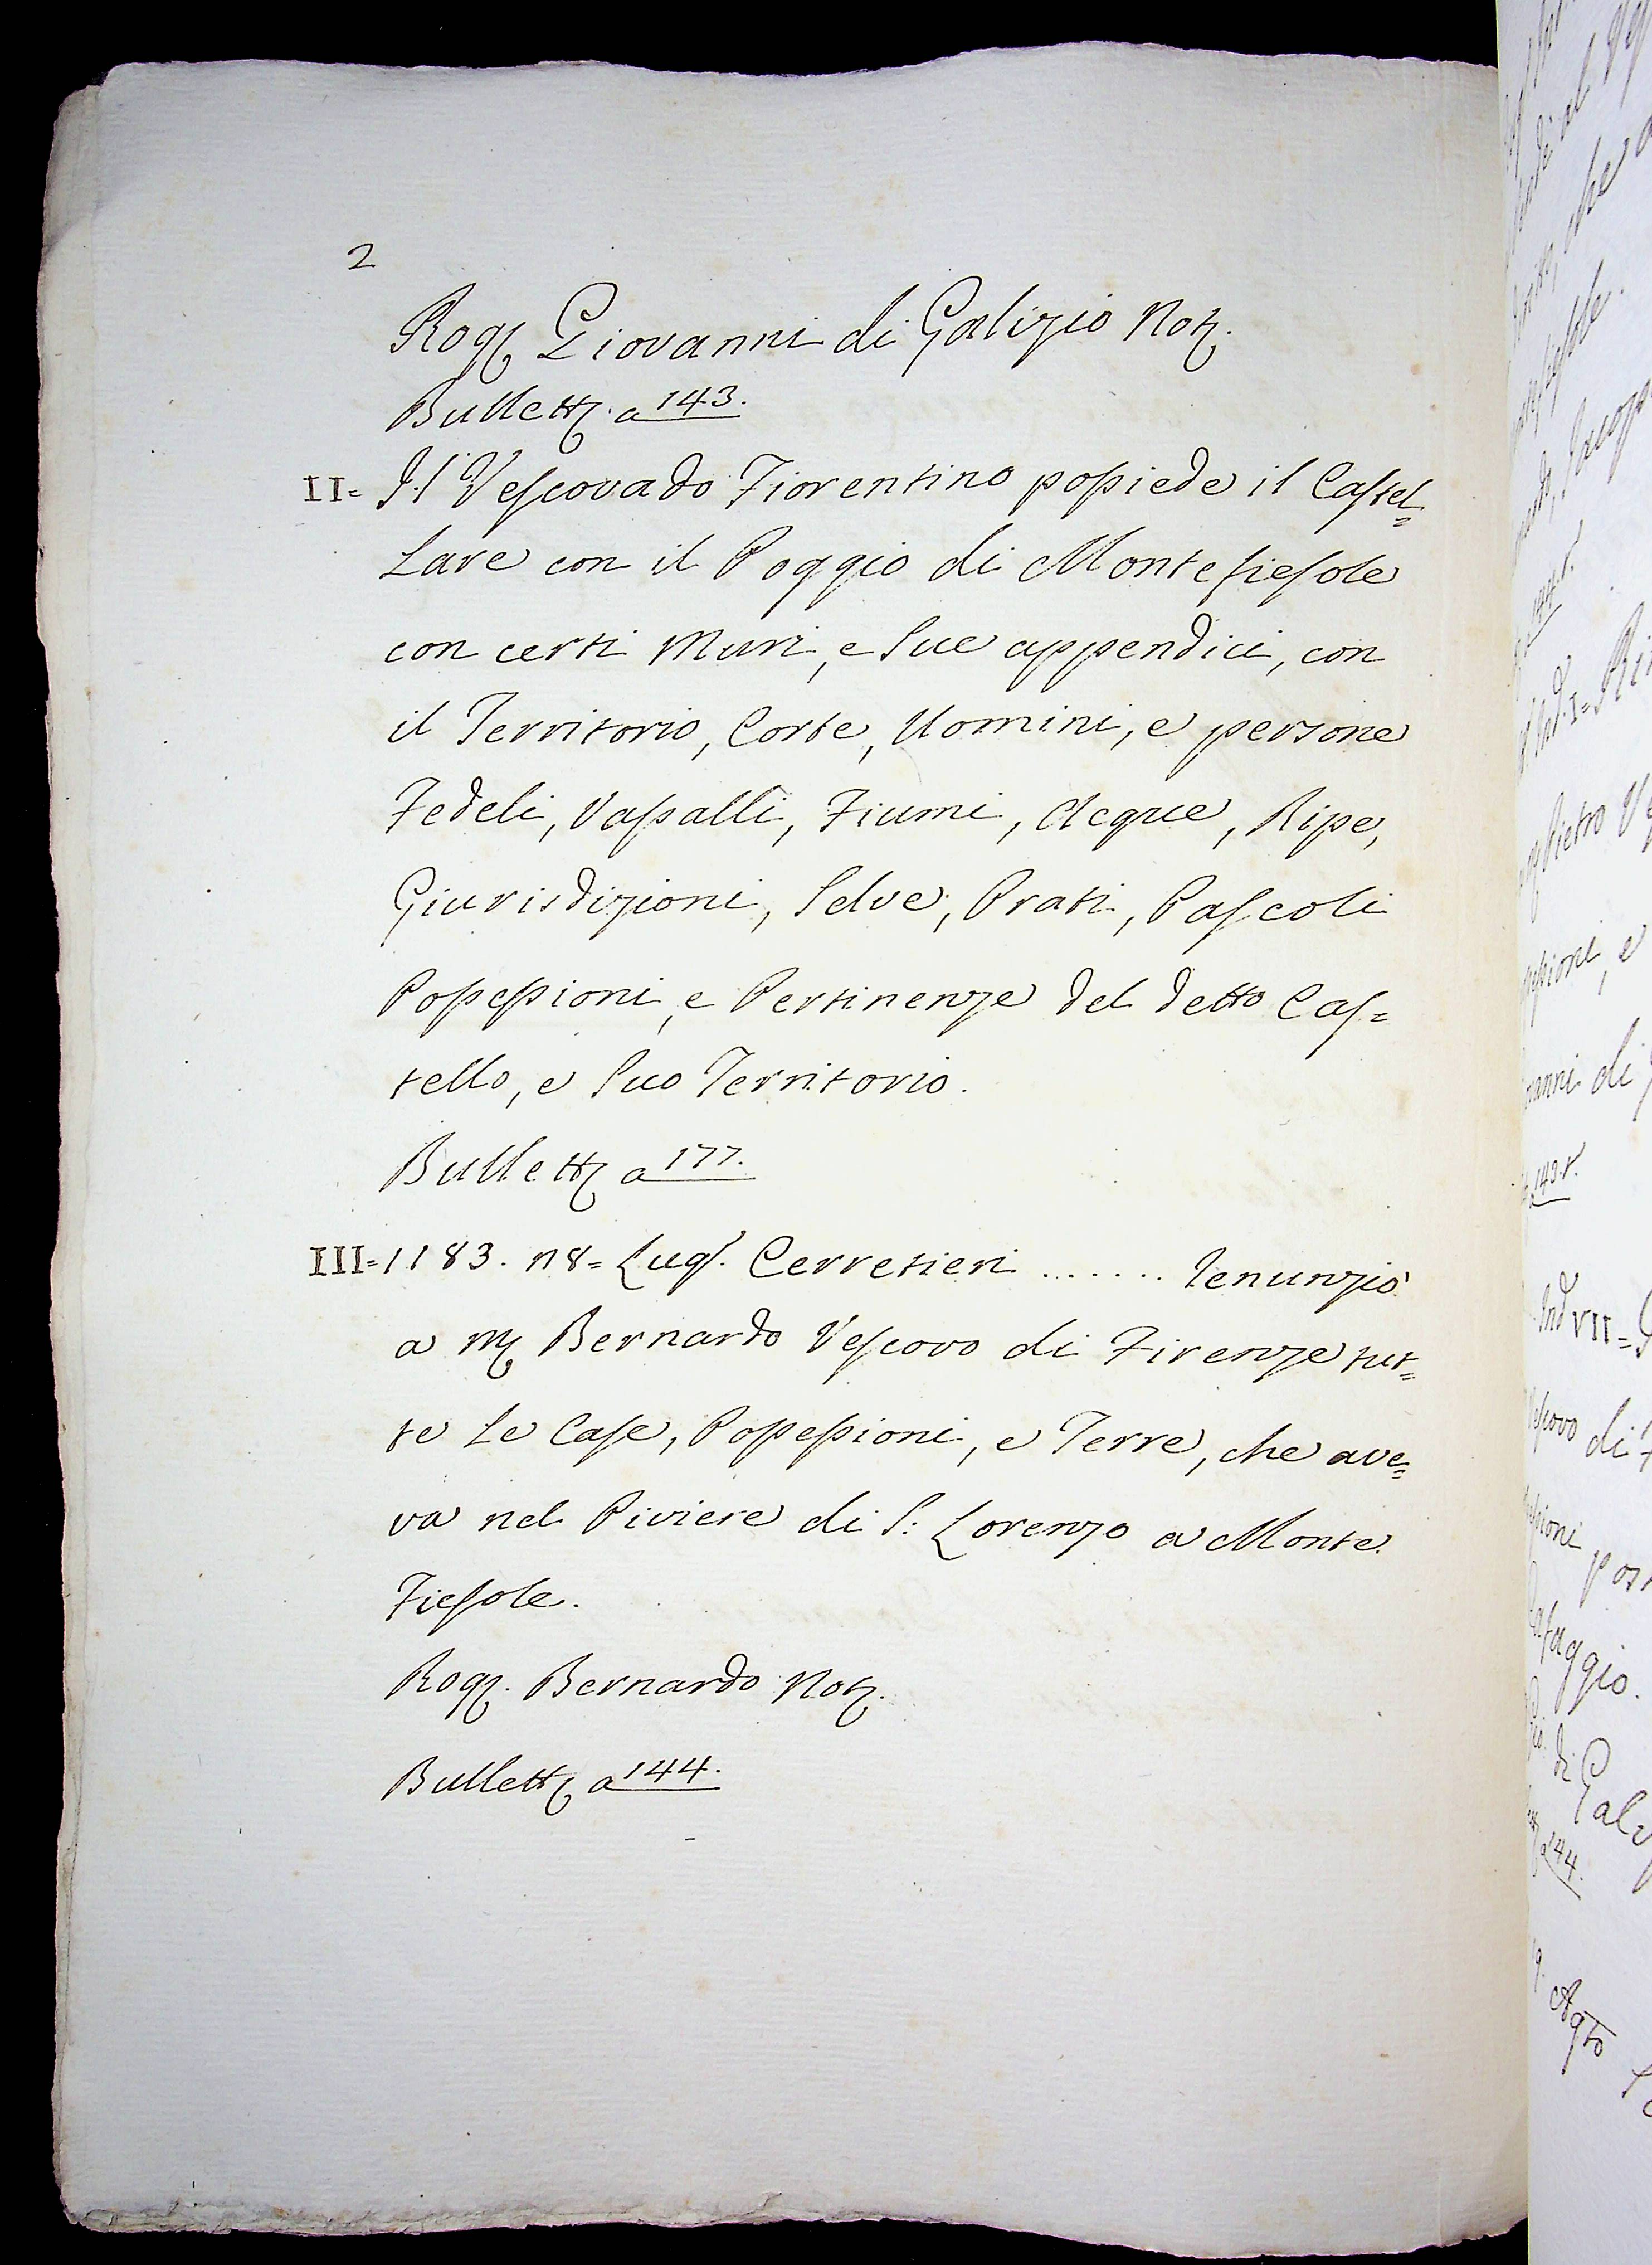 2
Rog: Giovanni di Galizio Not:
Bullett: a 143.
II= Il Vescovado Fiorentino possiede il Castel=
lare con il Poggio di Montefiesole
con certi Muri, e sue appendici, con
il Territorio, Corte, Uomini, e persone
Fedeli, Vassalli, Fiumi, Acque, Ripe,
Giurisdizioni, Selve, Prati, Pascoli
Possessioni, e Pertinenze del detto Cas=
tello, e suo Territorio.
Bullett: a 177.
III= 1183. 18= Lug. Cerretieri ...... renunziò
a M: Bernardo Vescovo di Firenze tut=
te le Case, Possessioni, e Terre, che ave=
va nel Piviere di S: Lorenzo a Monte
Fiesole.
Rog: Bernardo Not:
Bullett: a 144.